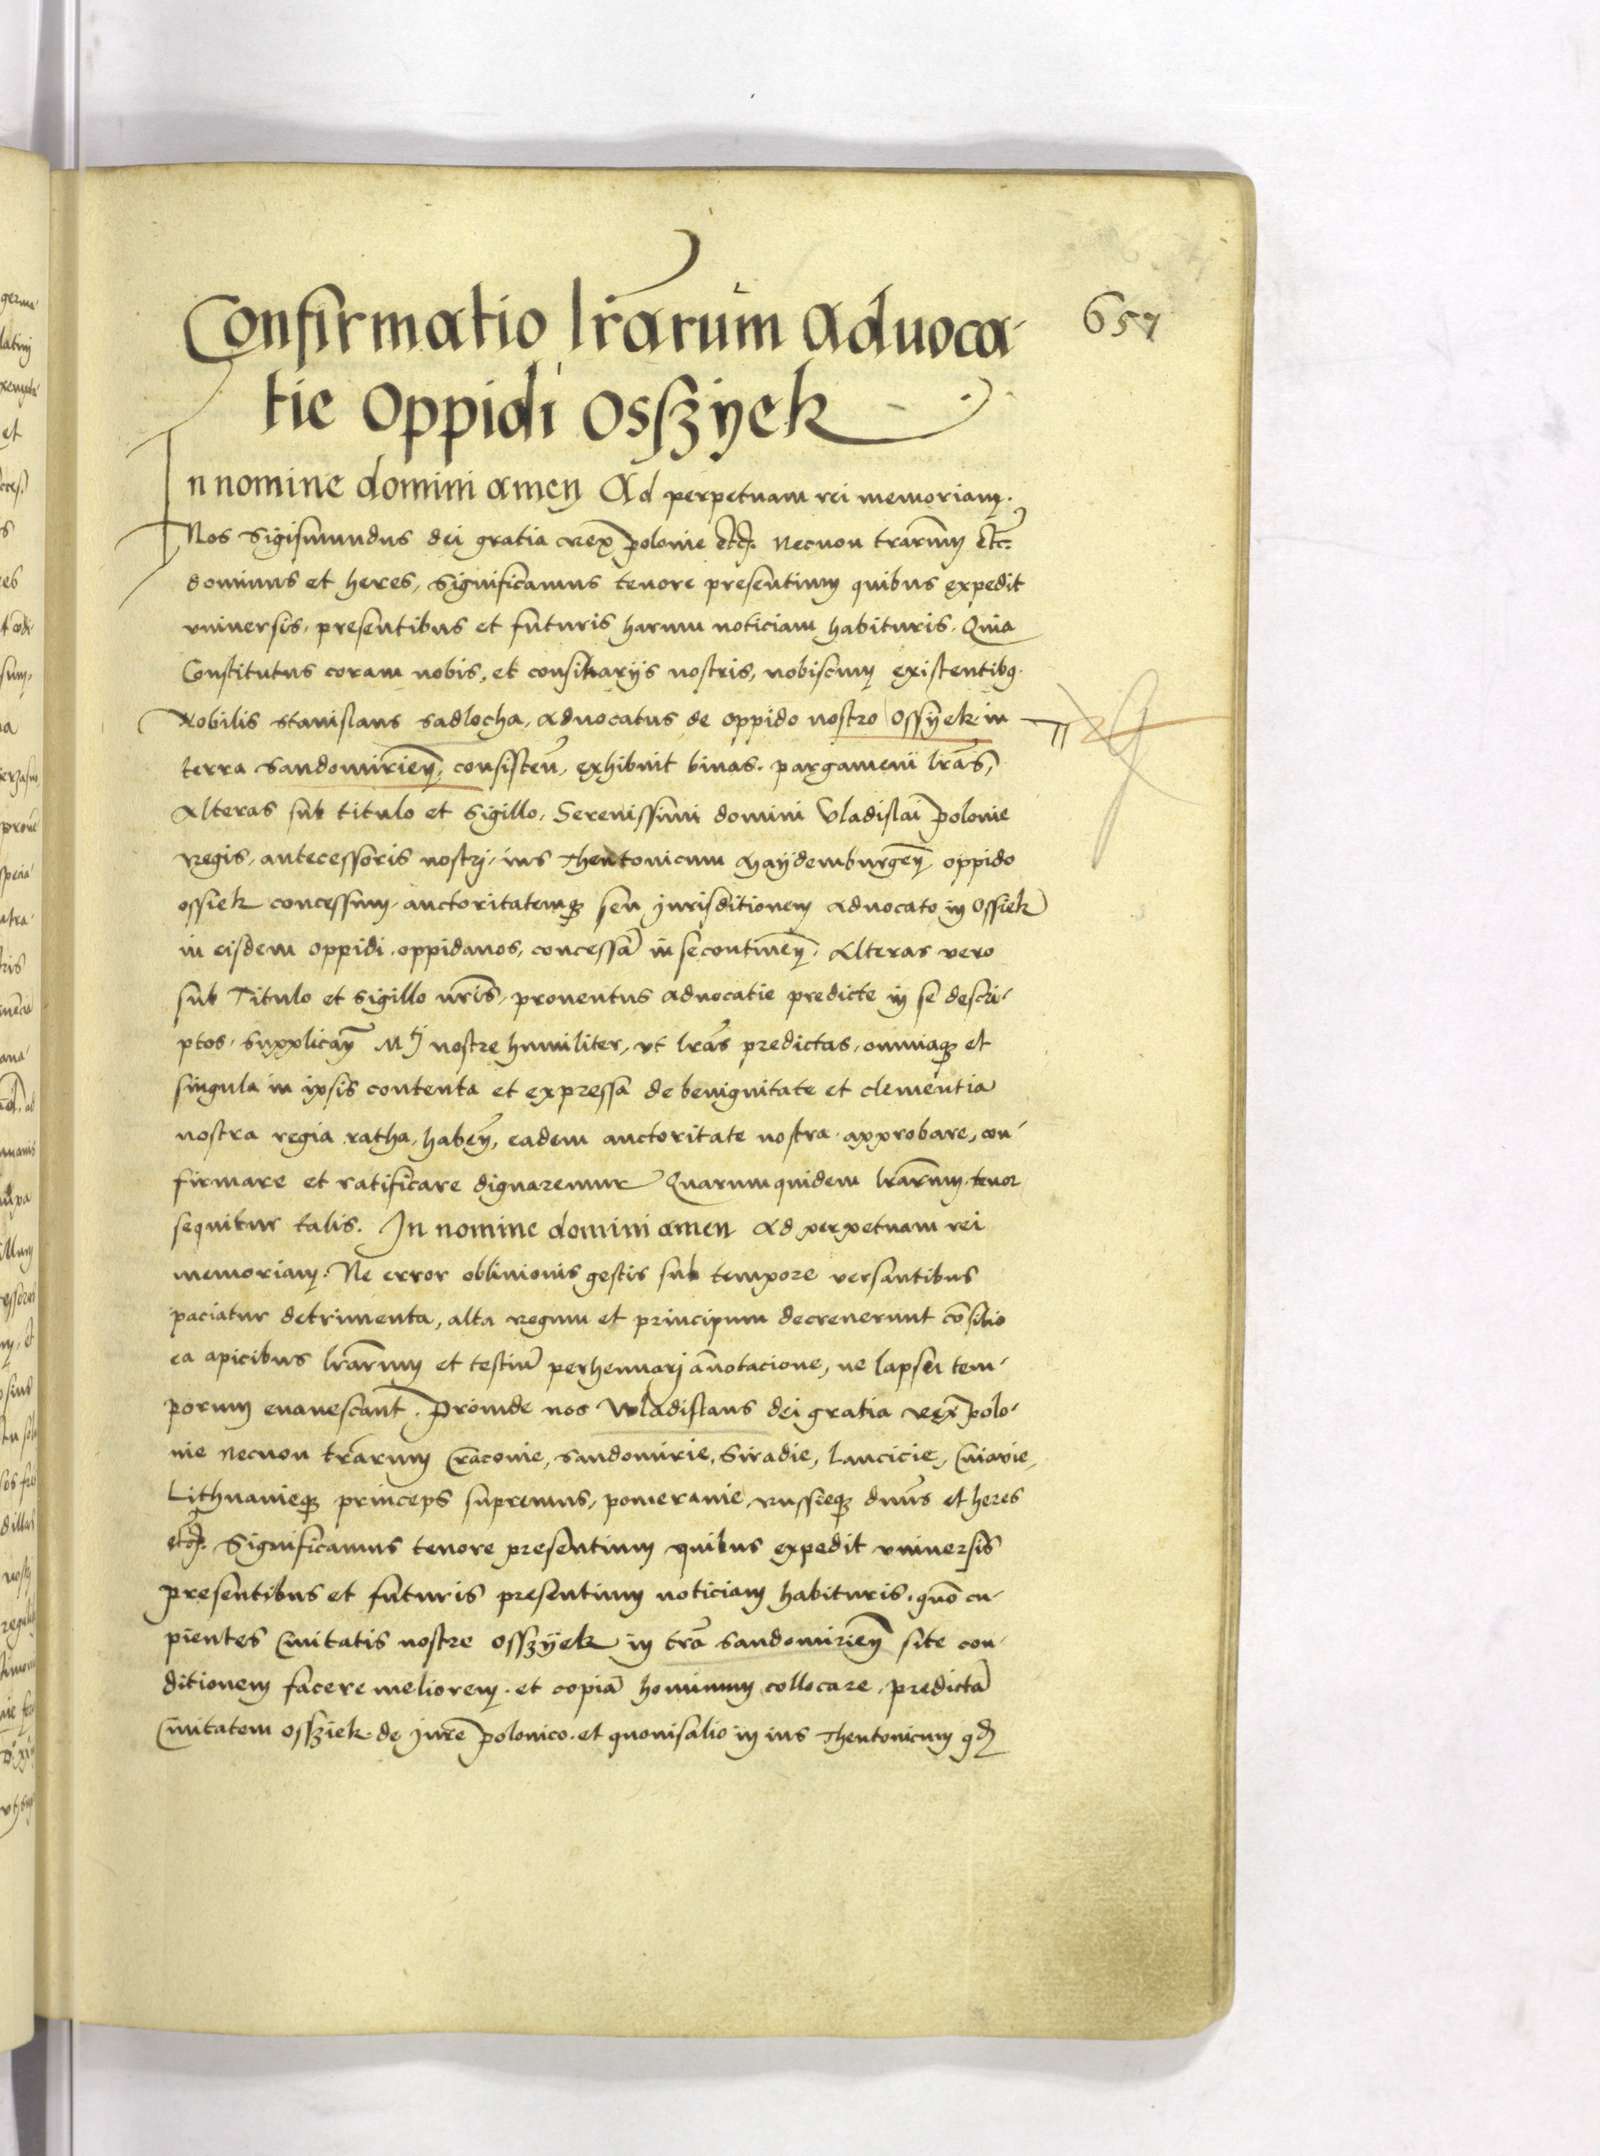 657
Confirmatio lrarum aduoca-
tie oppidi Osszyek
In nomine domini amen Ad perpetuam rei memoriam.
Nos Sigismundus dei gratia rex polonie etc. necnon trarum etc.
dominus et heres, Significamus tenore presentium quibus expedit
vniuersis, presentibus et futuris harum noticiam habituris. Quia
Constitutus coram nobis, et consiliarijs nostris, nobiscum existentibus.
Nobilis Stanislaus Sadlocha, aduocatus de oppido nostro Ossyek in
terra Sandomirien, consisten, exhibuit binas. pargameni lras,
Alteras sub titulo et Sigillo, Serenissimi domini Vladislai polonie
Regis, antecessoris nostrj, ius Theutonicum Maydemburgen oppido
ossiek concessum, auctoritatemque seu Jurisditionem aduocato in Ossiek
in eisdem oppidi oppidanos, concessa in se continen, Alteras vero
sub Titulo et Sigillo nris, prouentus aduocatie predicte in se descri-
ptos, supplican Mtj nostre humiliter, vt lras predictas, omniaque et
singula in ipsis contenta et expressa de benignitate et clementia
nostra regia ratha, haben, eadem auctoritate nostra approbare, con-
firmare et ratificare dignaremur Quarumquidem lrarum tenor
sequitur talis. In nomine domini amen Ad perpetuam rei
memoriam. Ne error obliuionis gestis sub tempore versantibus
paciatur detrimenta, alta regum et principum decreuerunt consilio
ea apicibus lrarum et testium perhennarj annotacione, ne lapsu tem-
porum euanescant. Proinde nos Wladislaus dei gratia rex polo-
nie necnon trarum Cracouie, Sandomirie, Siradie, Lancicie, Cuiauie,
Lithuanieque princeps supremus, pomeranie, russieque dnus et heres
etc. Significamus tenore presentium quibus expedit vniuersis
presentibus et futuris presentium noticiam habituris, quo cu-
pientes Ciuitatis nostre Osszyek in tra Sandomirien site con-
ditionem facere meliorem, et copia hominum collocare, predicta
Ciuitatem Ossziek de Jure polonico, et quouisalio in ius Theutonicum qd